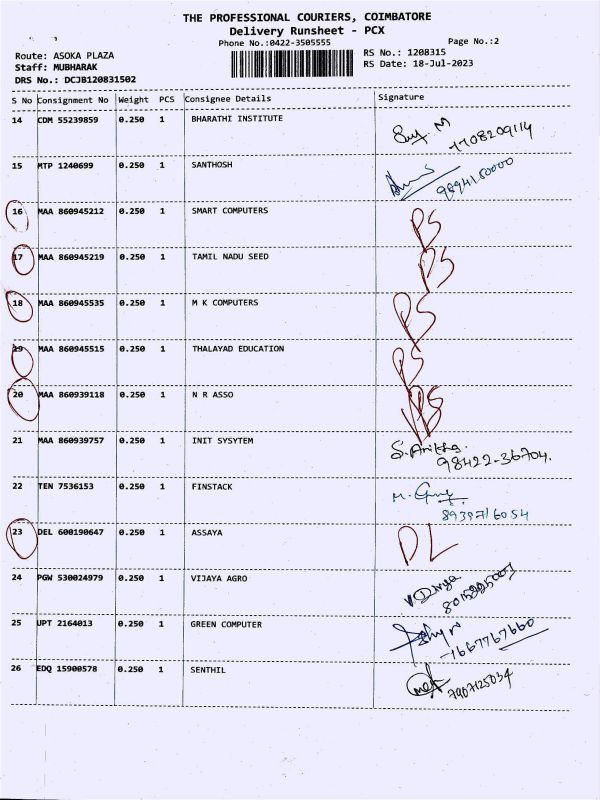 THE PROFESSIONAL COURIERS, COIMBATORE
Delivery Runsheet - PCX
Phone No.:0422-3505555 Page No.:2
Route: ASOKA PLAZA RS No.: 1208315
Staff: MUBHARAK RS Date: 18-Jul-2023
DRS No.: DCJB120831502
S No Consignment No Weight PCS Consignee Details Signature
14 CDM 55239859 0.250 1 BHARATHI INSTITUTE
7708209114
15 MTP 1240699 0.250 1 SANTHOSH
9894150000
16 MAA 860945212 0.250 1 SMART COMPUTERS PS
17 MAA 860945219 0.250 1 TAMIL NADU SEED PS
18 MAA 860945535 0.250 1 M K COMPUTERS PS
19 MAA 860945515 0.250 1 THALAYAD EDUCATION PS
20 MAA 860939118 0.250 1 N R ASSO PS
21 MAA 860939757 0.250 1 INIT SYSYTEM S. Anitha.
98422-36704.
22 TEN 7536153 0.250 1 FINSTACK
8939716054
23 DEL 600190647 0.250 1 ASSAYA DL
24 PGW 530024979 0.250 1 VIJAYA AGRO V. Divya
25 UPT 2164013 0.250 1 GREEN COMPUTER
7667767660
26 EDQ 15900578 0.250 1 SENTHIL
7907125034